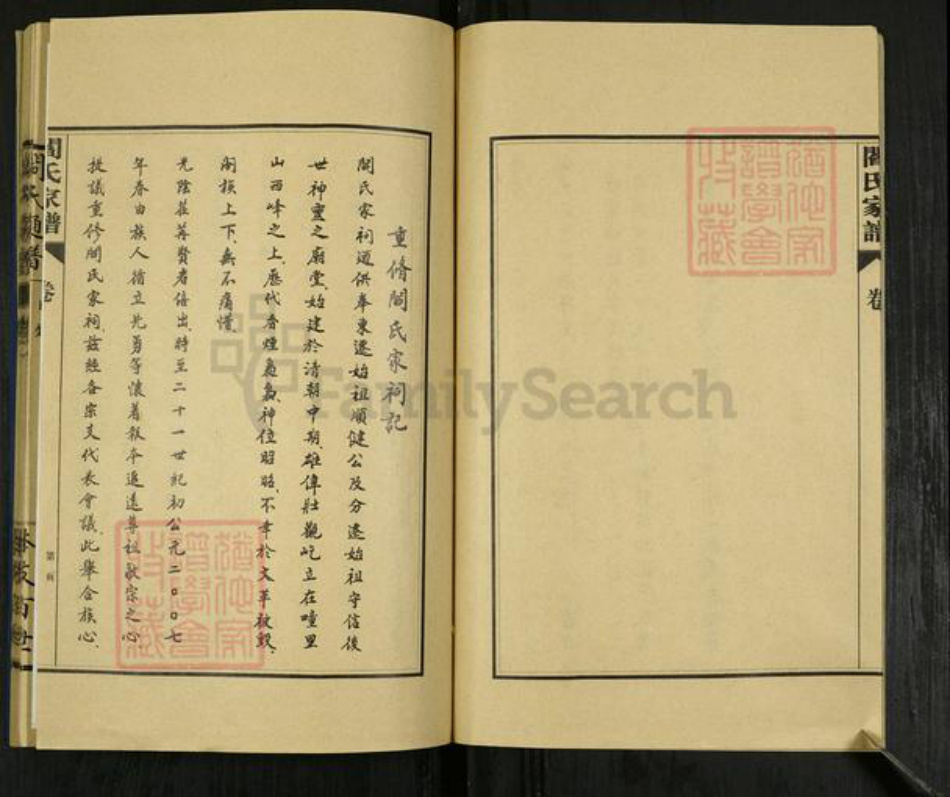 閻氏家譜
卷
重脩閻氏家祠記
閻氏家祠迺供奉東遷始祖順健公及分遷始祖守信後
世神靈之廟堂、始建於清朝中期、雄偉壯觀屹立在疃里
山西峰之上、歷代香煙裊裊、神位昭昭、不幸於文革被毀、
閻族上下、無不痛惜、
光陰荏苒賢者倍出、時至二十一世紀初公元二〇〇七
年春由族人循立 允勇等懷着報本追遠尊祖敬宗之心、
提議重修閻氏家祠、茲經各宗支代表會議、此舉合族心、
閻氏家譜
卷
閻氏通譜
FamilySearch
譜學會
收藏